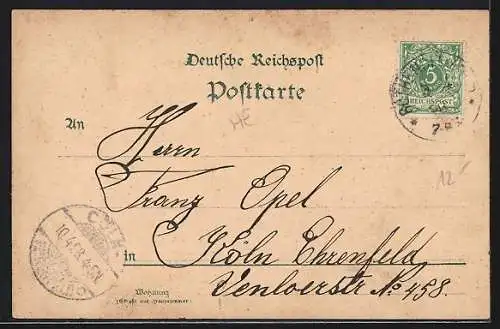 Deutsche Reichspost
Postkarte
5
REICHSPOST
7-8
HE
12-
An
Herrn
Franz Opel
in Köln Ehrenfeld
Venloerstr No 458.
Wohnung
(Straße und Hausnummer)